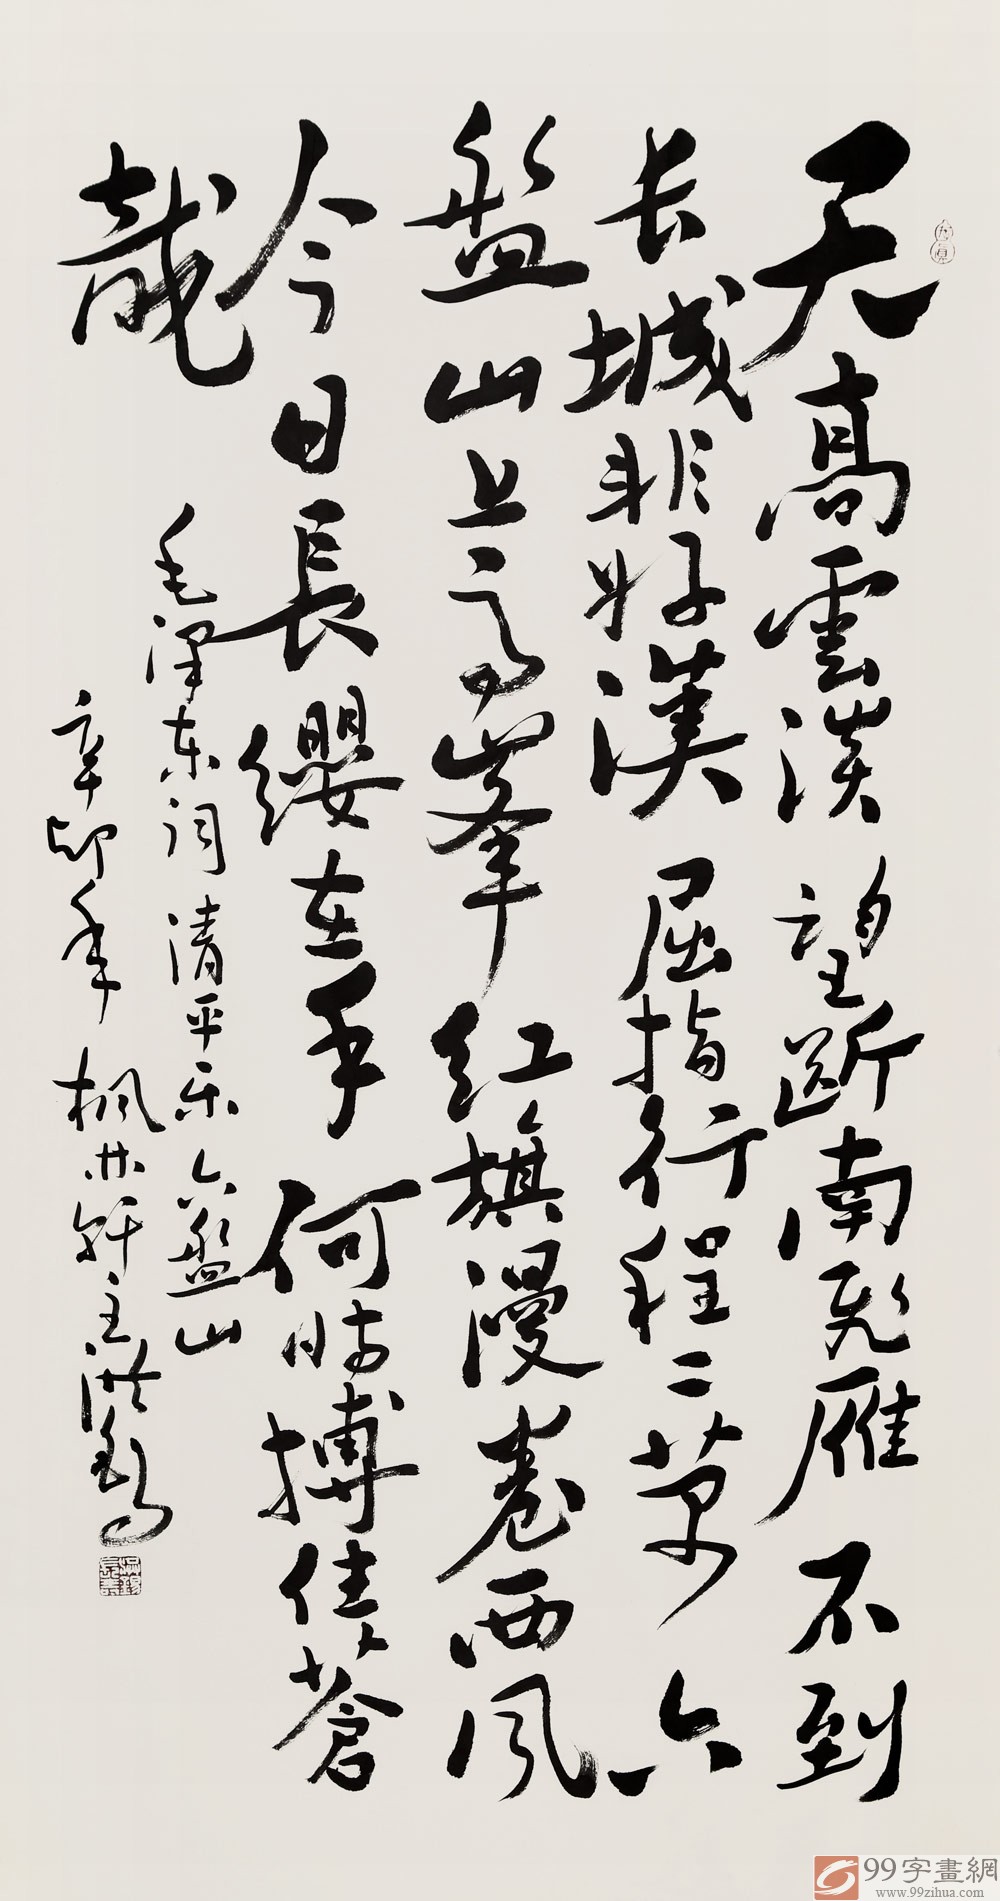 天高雲淡望斷南飛雁不到
长城非好漢屈指行程二萬六
盤山上高峯红旗漫卷西风
今日長纓在手何時搏住蒼
龍
毛泽东词清平乐六盤山
辛卯年枫林轩主洪
99字畫網
www.99zihua.com